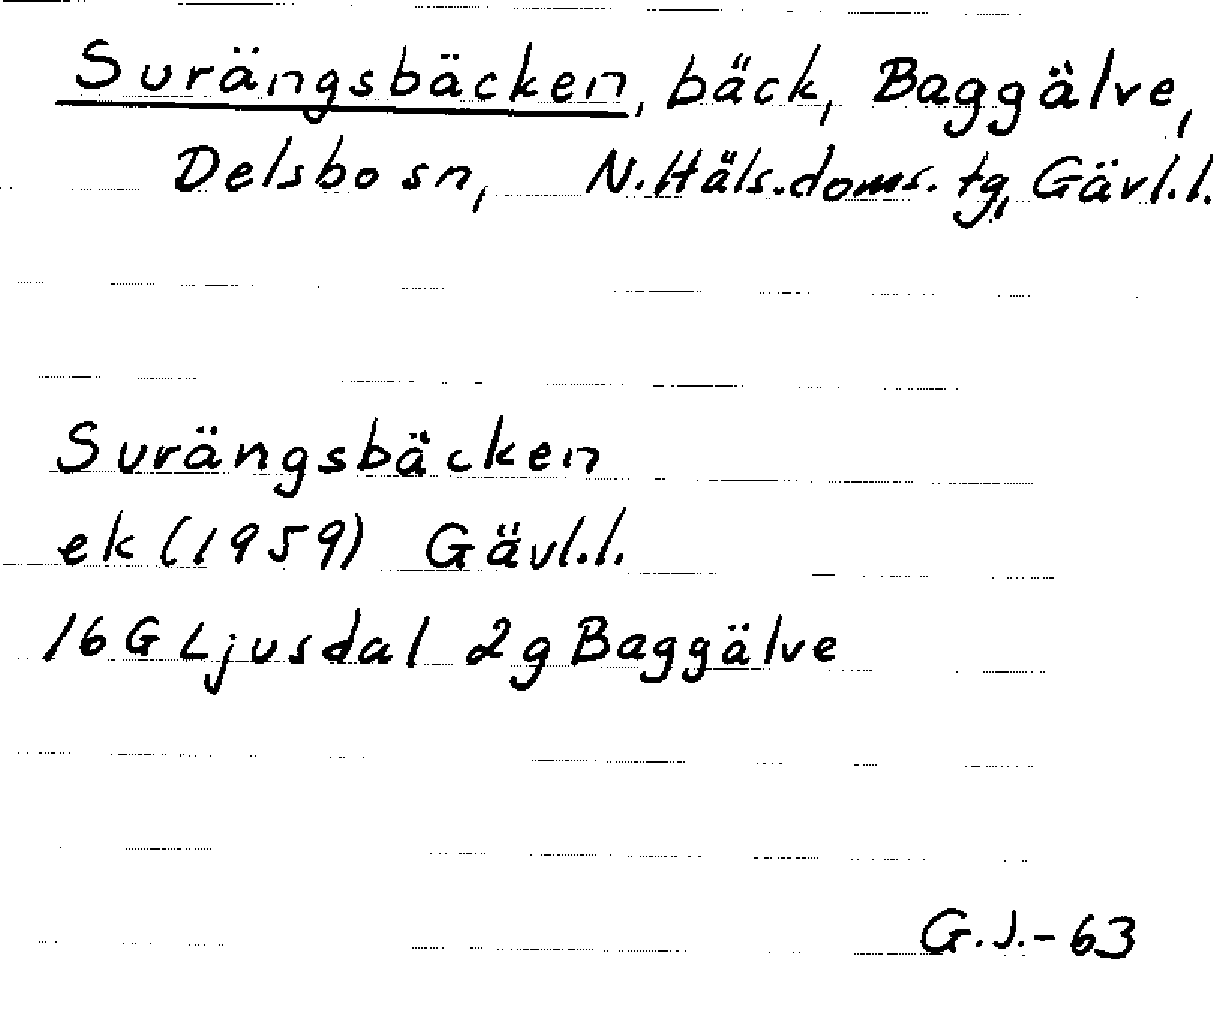 Surängsbäcken, bäck, Baggälve,
Delsbo sn, N. Häls. doms. tg, Gävl. l.
Surängsbäcken
ek (1959) Gävl. l.
16 G Ljusdal 2g Baggälve
G. J. - 63